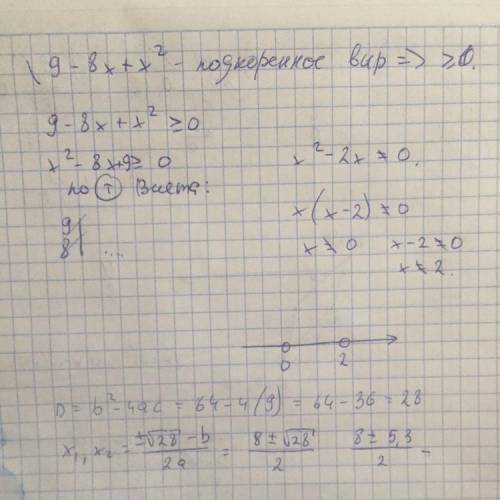 9 - 8x + x² - подкоренное выр => ≥0.
9 - 8x + x² ≥ 0
x² - 8x + 9 ≥ 0
по Ⓣ Виета:
9
8 ...
x² - 2x ≠ 0.
x(x - 2) ≠ 0
x ≠ 0 x - 2 ≠ 0
x ≠ 2.
0 2
D = b² - 4ac = 64 - 4(9) = 64 - 36 = 28
x₁, x₂ = ±√28 - b / 2a = 8 ± √28 / 2 8 ± 5,3 / 2 -